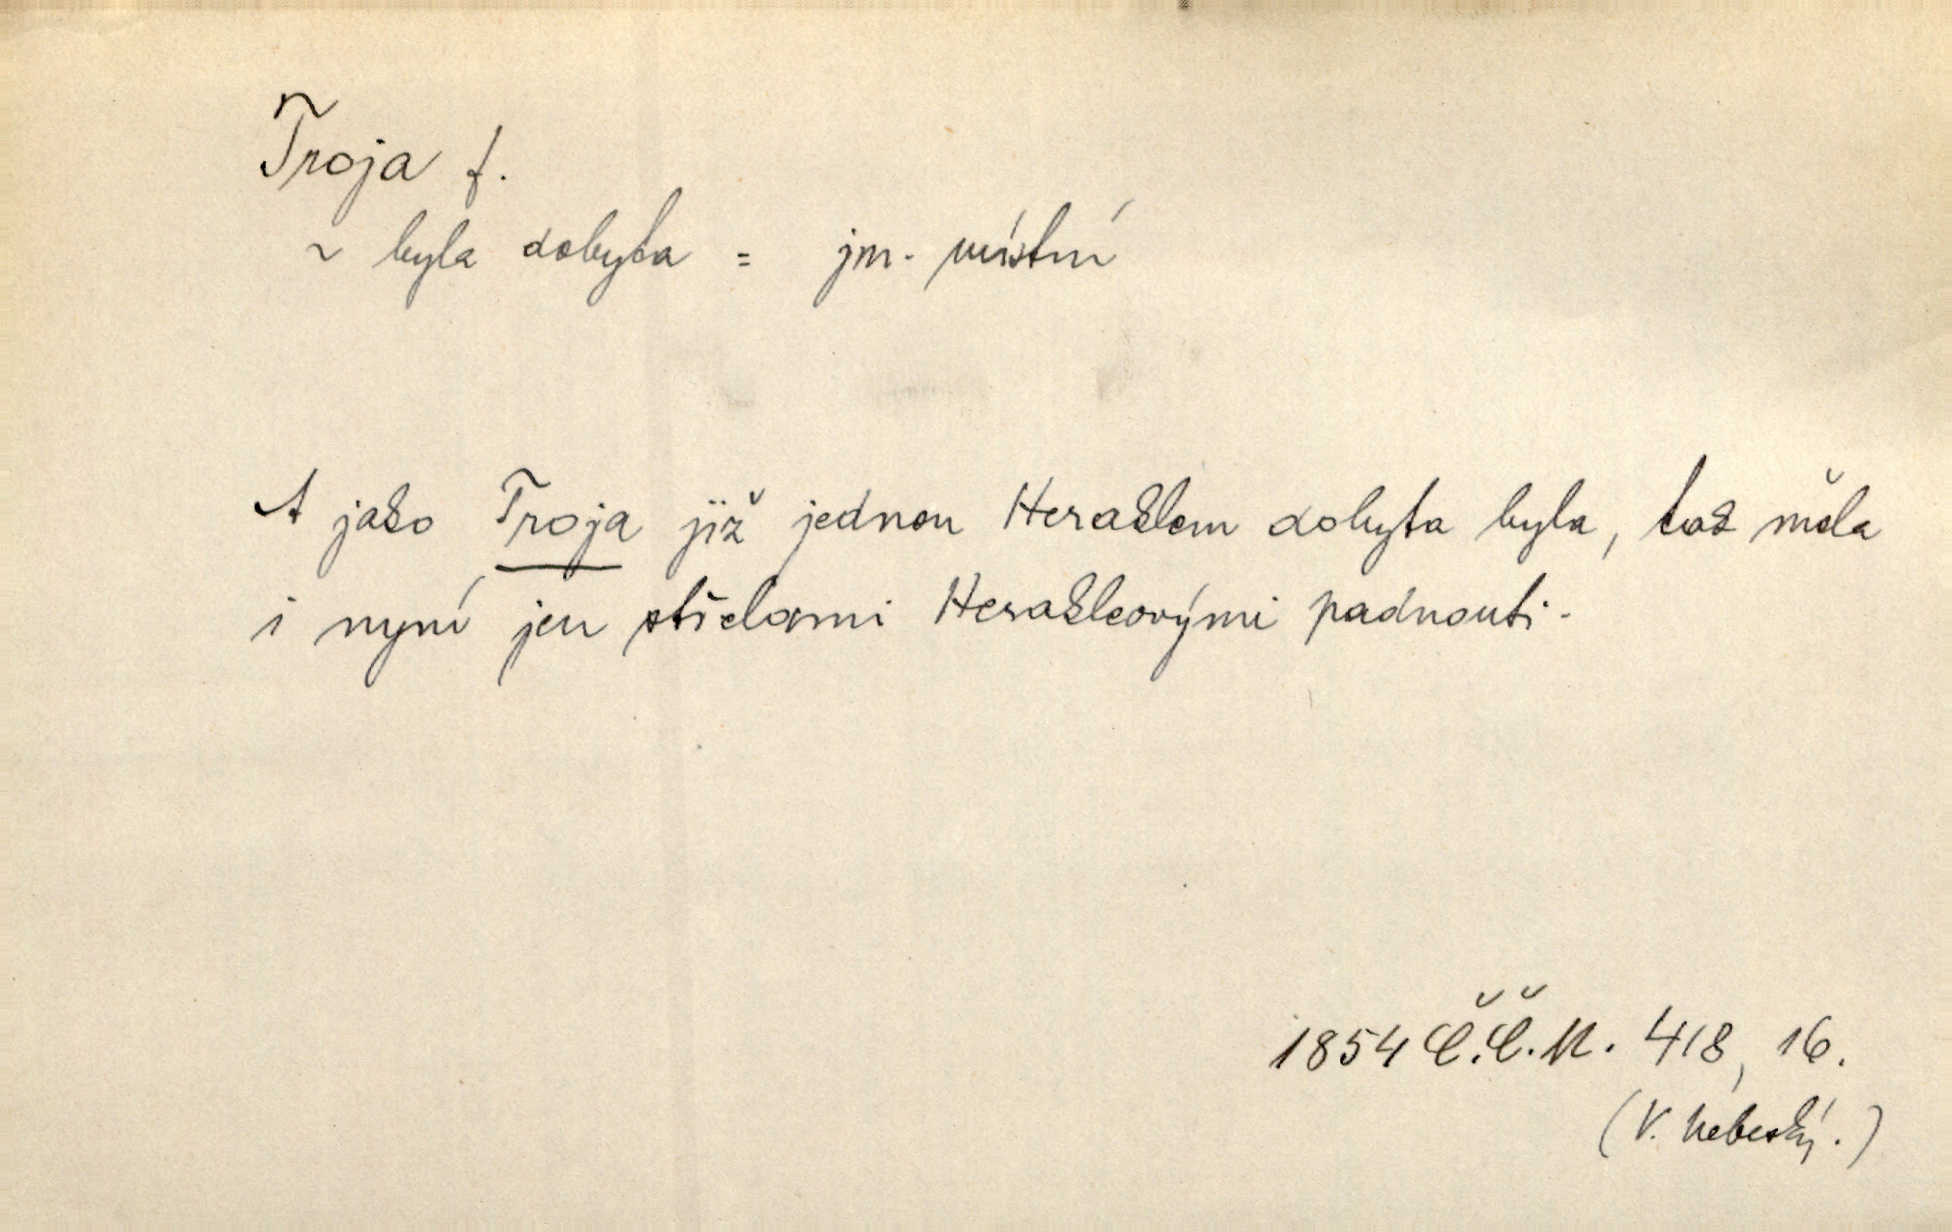 Troja f.
~ byla dobyta = jm. místní
A jako Troja již jednou Heraklem dobyta byla, tak měla
i nyní jen střelami Herakleovými padnouti.
1854 Č.Č.M. 418, 16.
(V. Nebeský.)